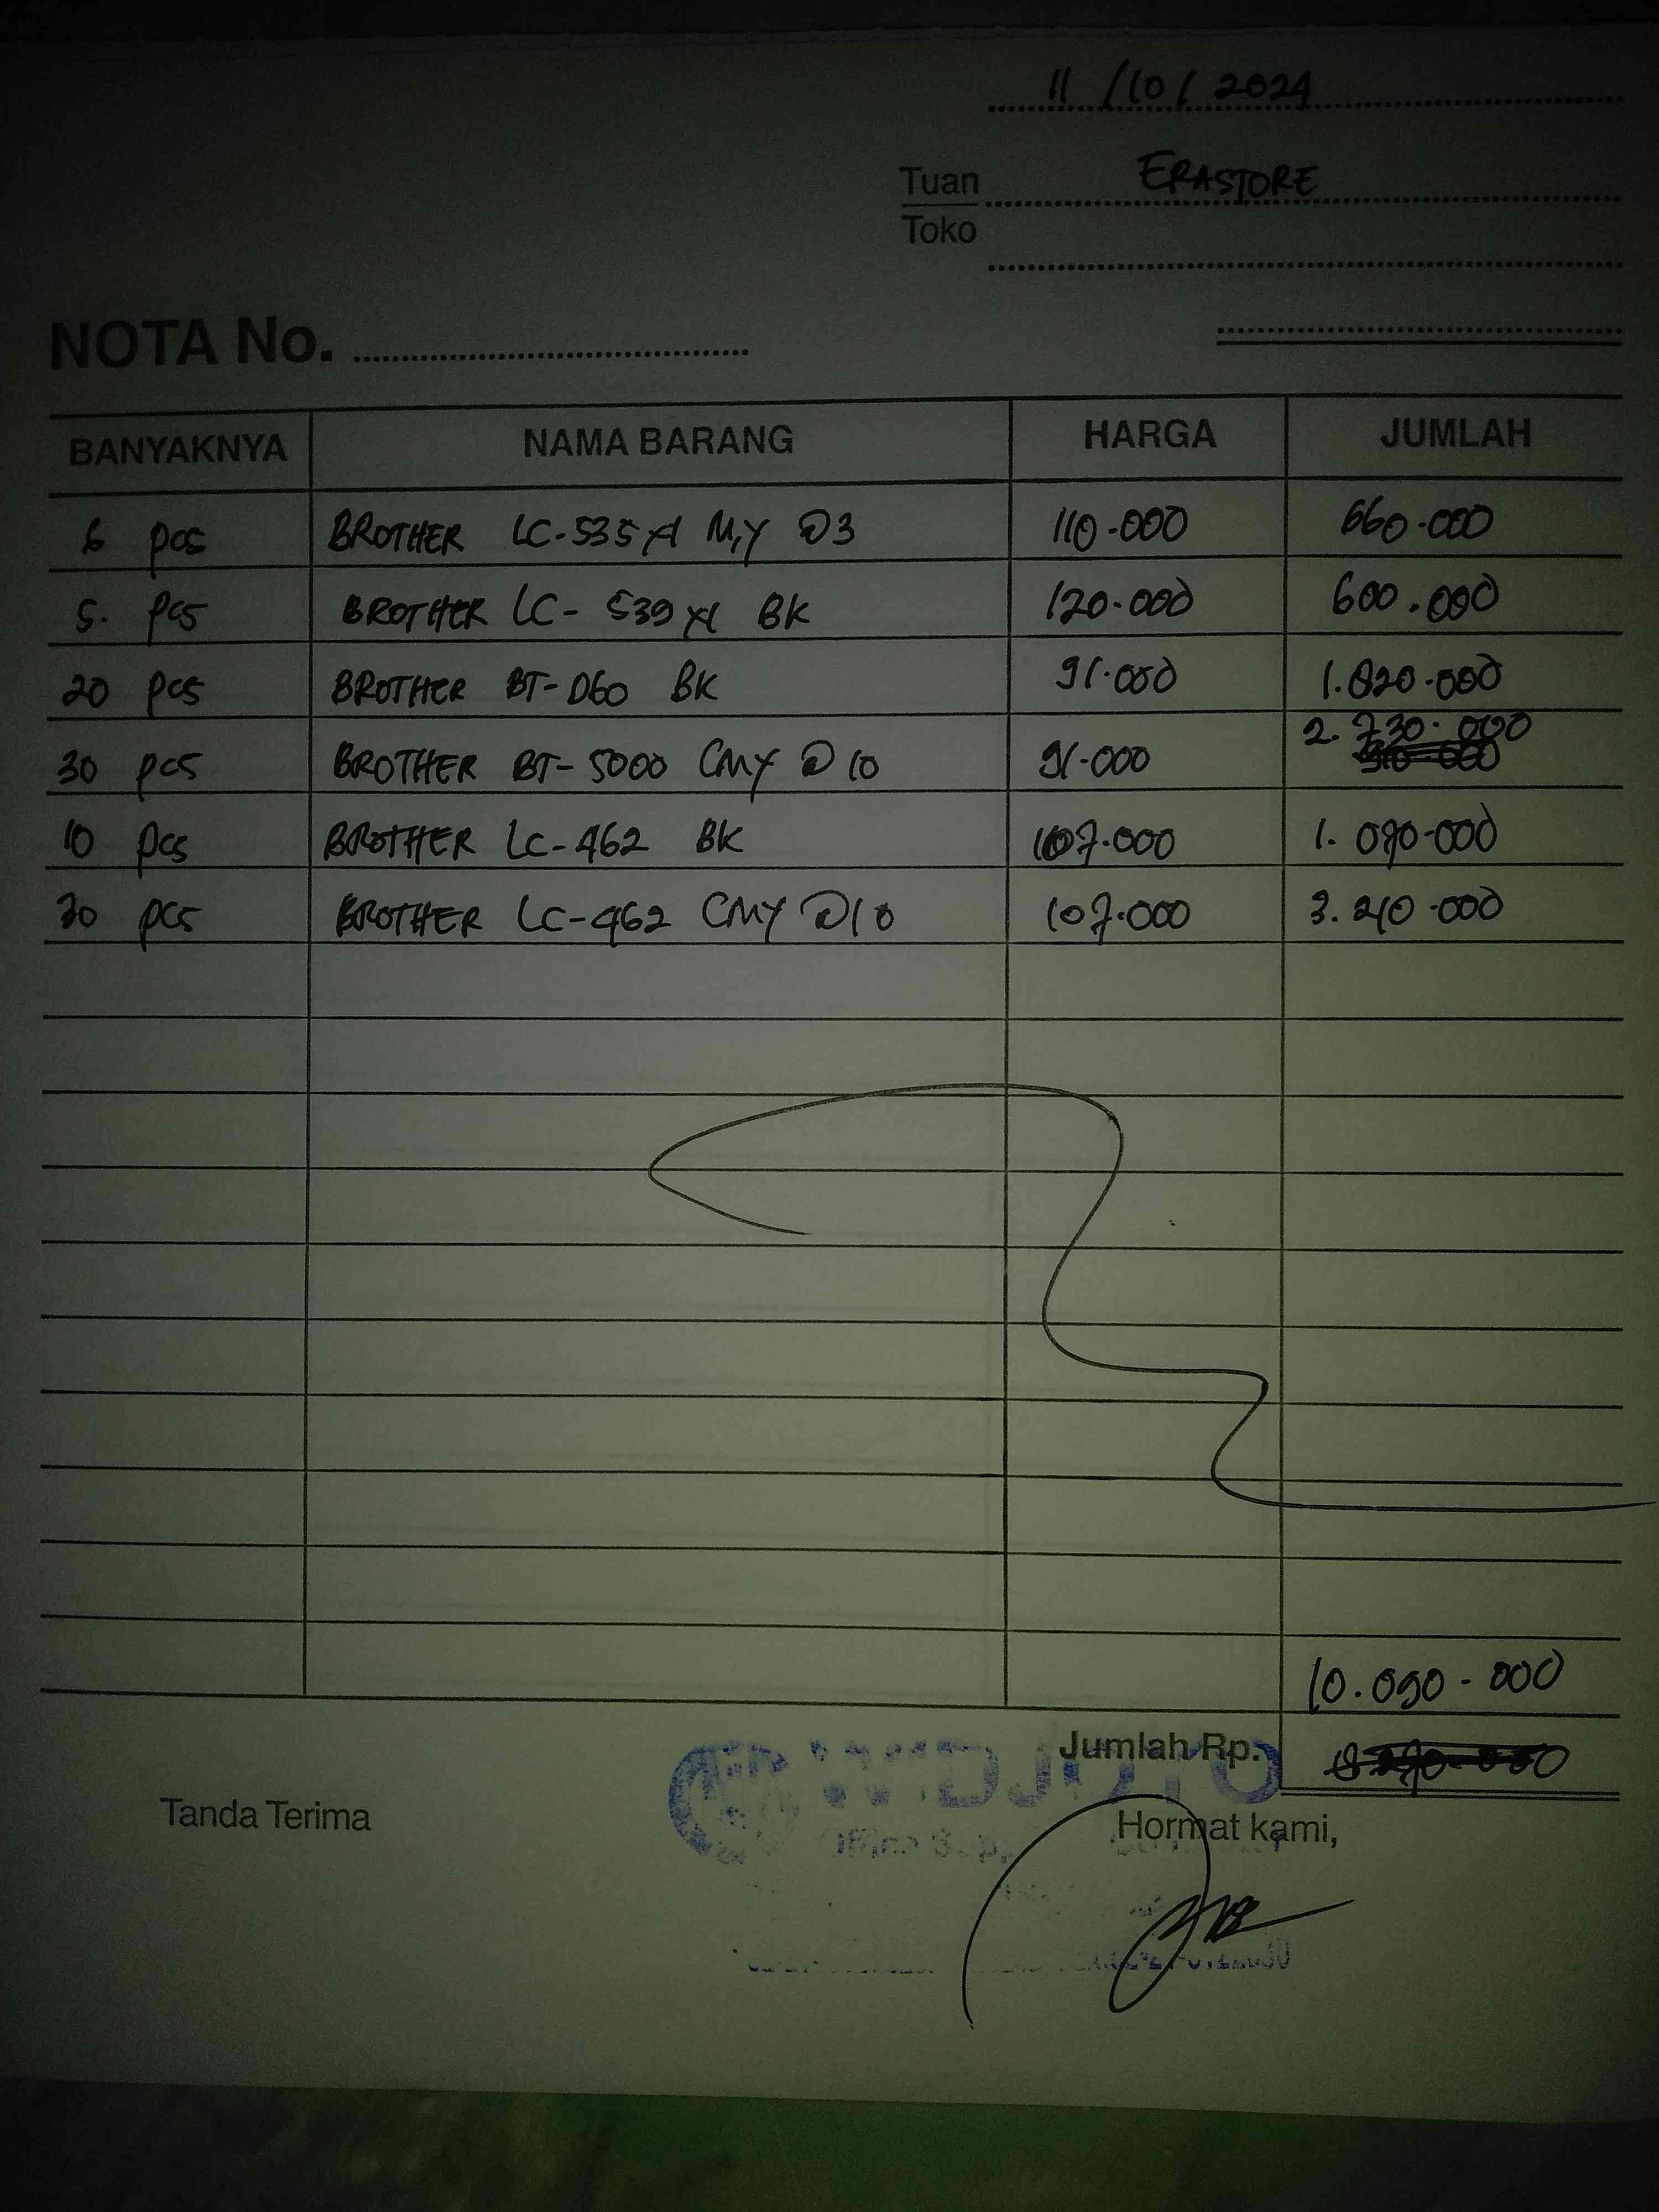 11 / 10 / 2024
Tuan ERASTORE
Toko
NOTA No.
BANYAKNYA NAMA BARANG HARGA JUMLAH
6 pcs BROTHER LC-535 xl M,Y @3 110.000 660.000
5. pcs BROTHER LC-539 xl BK 120.000 600.000
20 pcs BROTHER BT-D60 BK 91.000 1.820.000
30 pcs BROTHER BT-5000 CMY @10 91.000 2.730.000
10 pcs BROTHER LC-462 BK 107.000 1.070.000
30 pcs BROTHER LC-462 CMY @10 107.000 3.210.000
10.090.000
Jumlah Rp.
Tanda Terima Hormat kami,